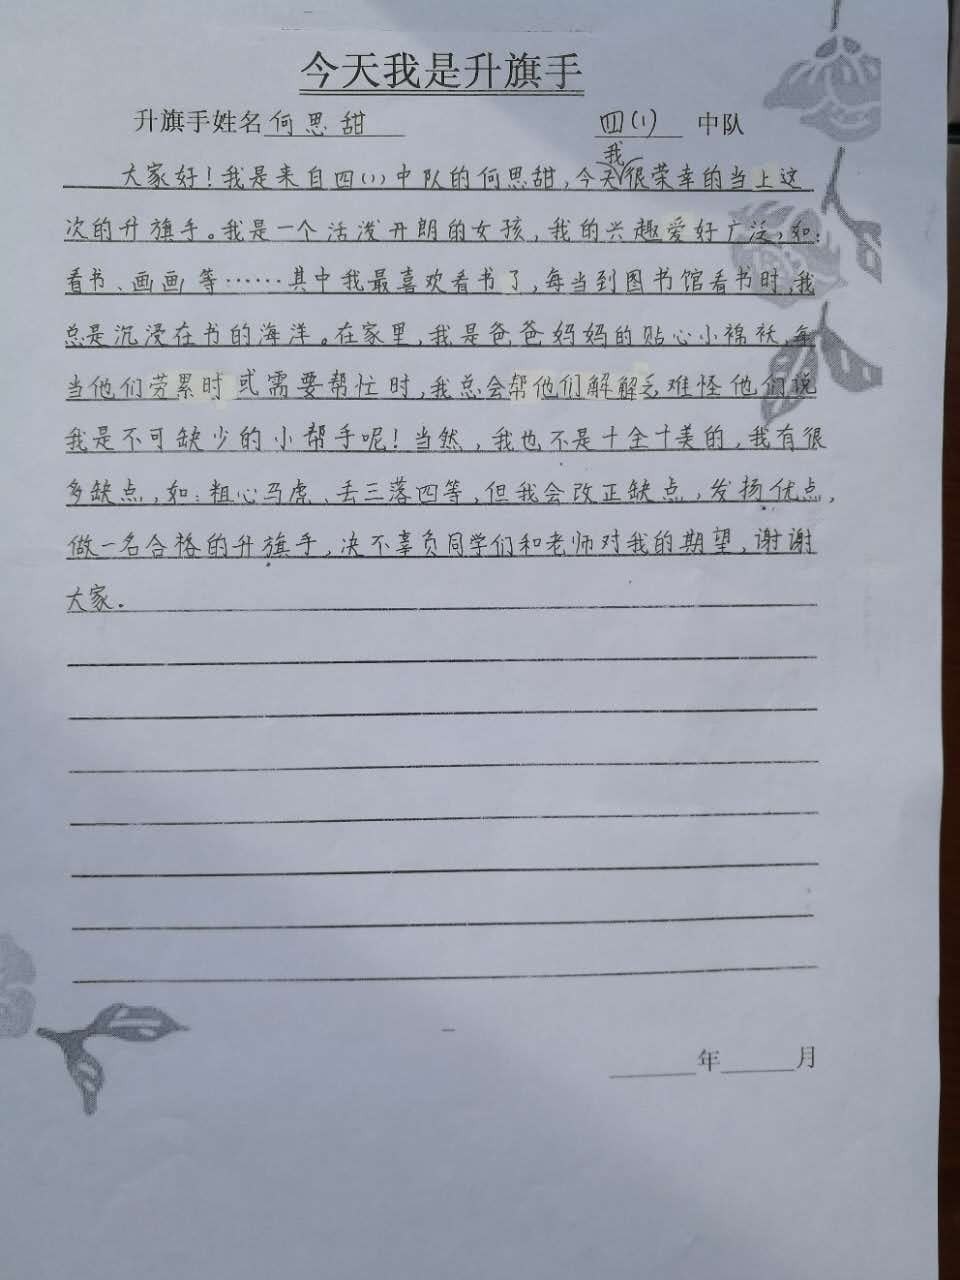 今天我是升旗手
升旗手姓名何思甜 四(1) 中队
我
大家好！我是来自四(1)中队的何思甜，今天很荣幸的当上这
次的升旗手。我是一个活泼开朗的女孩，我的兴趣爱好广泛，如：
看书、画画等……其中我最喜欢看书了，每当到图书馆看书时，我
总是沉浸在书的海洋。在家里，我是爸爸妈妈的贴心小棉袄，每
当他们劳累时或需要帮忙时，我总会帮他们解解乏，难怪他们说
我是不可缺少的小帮手呢！当然，我也不是十全十美的，我有很
多缺点，如：粗心马虎、丢三落四等，但我会改正缺点，发扬优点，
做一名合格的升旗手，决不辜负同学们和老师对我的期望，谢谢
大家。
年 月